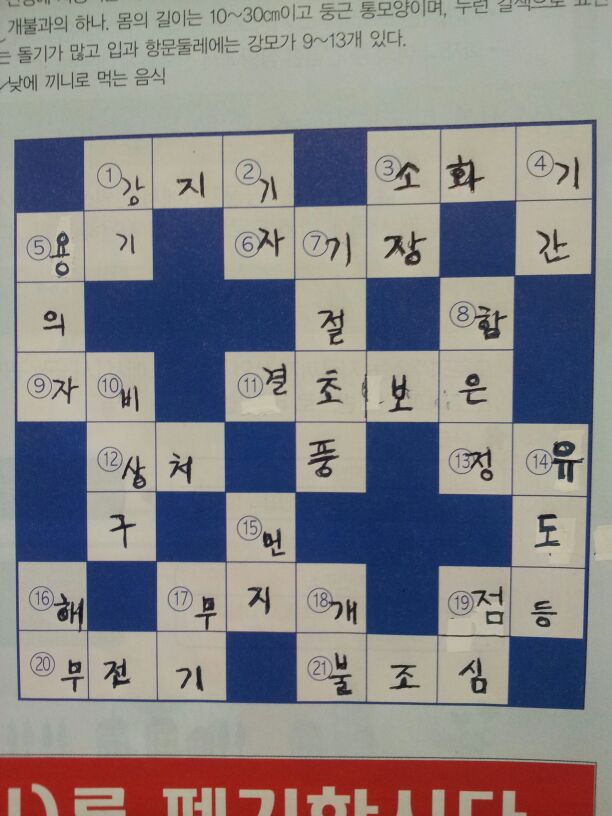 개불과의 하나. 몸의 길이는 10~30cm이고 둥근 통모양이며, 누런 갈색으로
는 돌기가 많고 입과 항문둘레에는 강모가 9~13개 있다.
낮에 끼니로 먹는 음식
①강 지 ②기 ③소 화 ④기
⑤용 기 ⑥자 ⑦기 장 간
의 절 ⑧함
⑨자 ⑩비 ⑪결 초 보 은
⑫상 처 풍 ⑬정 ⑭유
구 ⑮먼 도
⑯해 ⑰무 지 ⑱개 ⑲점 등
⑳무 전 기 ㉑불 조 심
를 폐기합시다